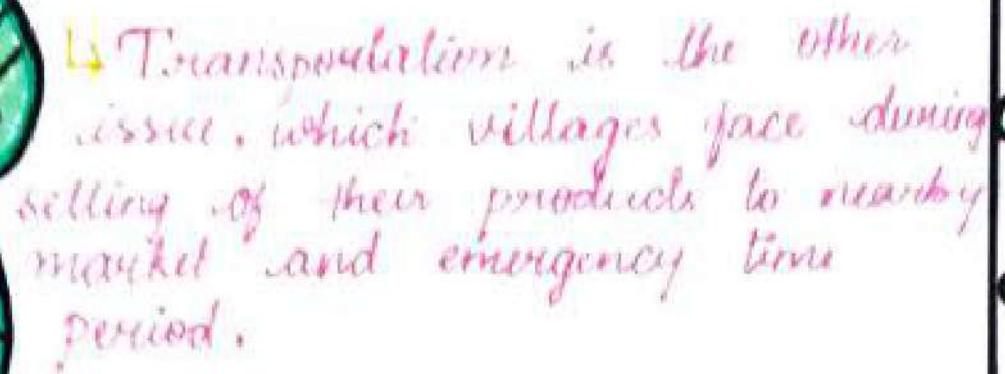 ↳ Transportation is the other
issue. which villages face during
selling of their products to nearby
market and emergency time
period.